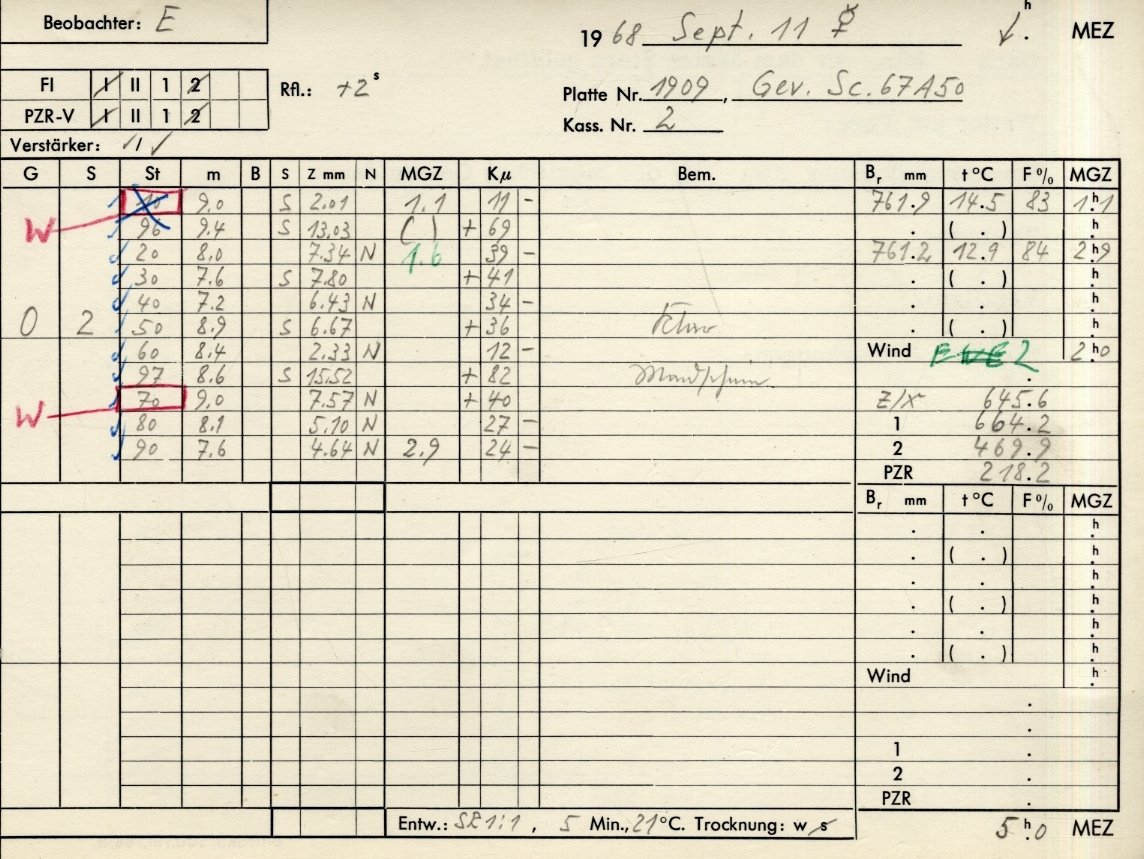 Beobachter: E
1968 Sept. 11 ☿ h . MEZ
FI I II 1 2
Rfl.: +2 s
Platte Nr. 1909, Gev. Sc. 67A50
PZR-V I II 1 2
Kass. Nr. 2
Verstärker: 1
G S St m B S Z mm N MGZ Kμ Bem. Br mm t °C F % MGZ
W 10 9.0 S 2.01 1.1 11 - 761.9 14.5 83 1.h1
96 9.4 S 13.03 ( ) + 69 . ( . ) .h
20 8.0 7.34 N 1.6 39 - 761.2 12.9 84 2.h9
30 7.6 S 7.80 + 41 . ( . ) .h
40 7.2 6.43 N 34 - . . .h
0 2 50 8.9 S 6.67 + 36 . ( . ) .h
60 8.4 2.33 N 12 - Wind E 2 2.h0
97 8.6 S 15.52 + 82 Mondschein .
W 70 9.0 7.57 N + 40 Z/X 645.6
80 8.1 5.10 N 27 - 1 664.2
90 7.6 4.64 N 2.9 24 - 2 469.9
PZR 218.2
Br mm t °C F % MGZ
. . .h
. ( . ) .h
. . .h
. ( . ) .h
. . .h
. ( . ) .h
Wind .h
.
.
1 .
2 .
PZR .
Entw.: 1:1, 5 Min., 21 °C. Trocknung: w s
5.h0 MEZ